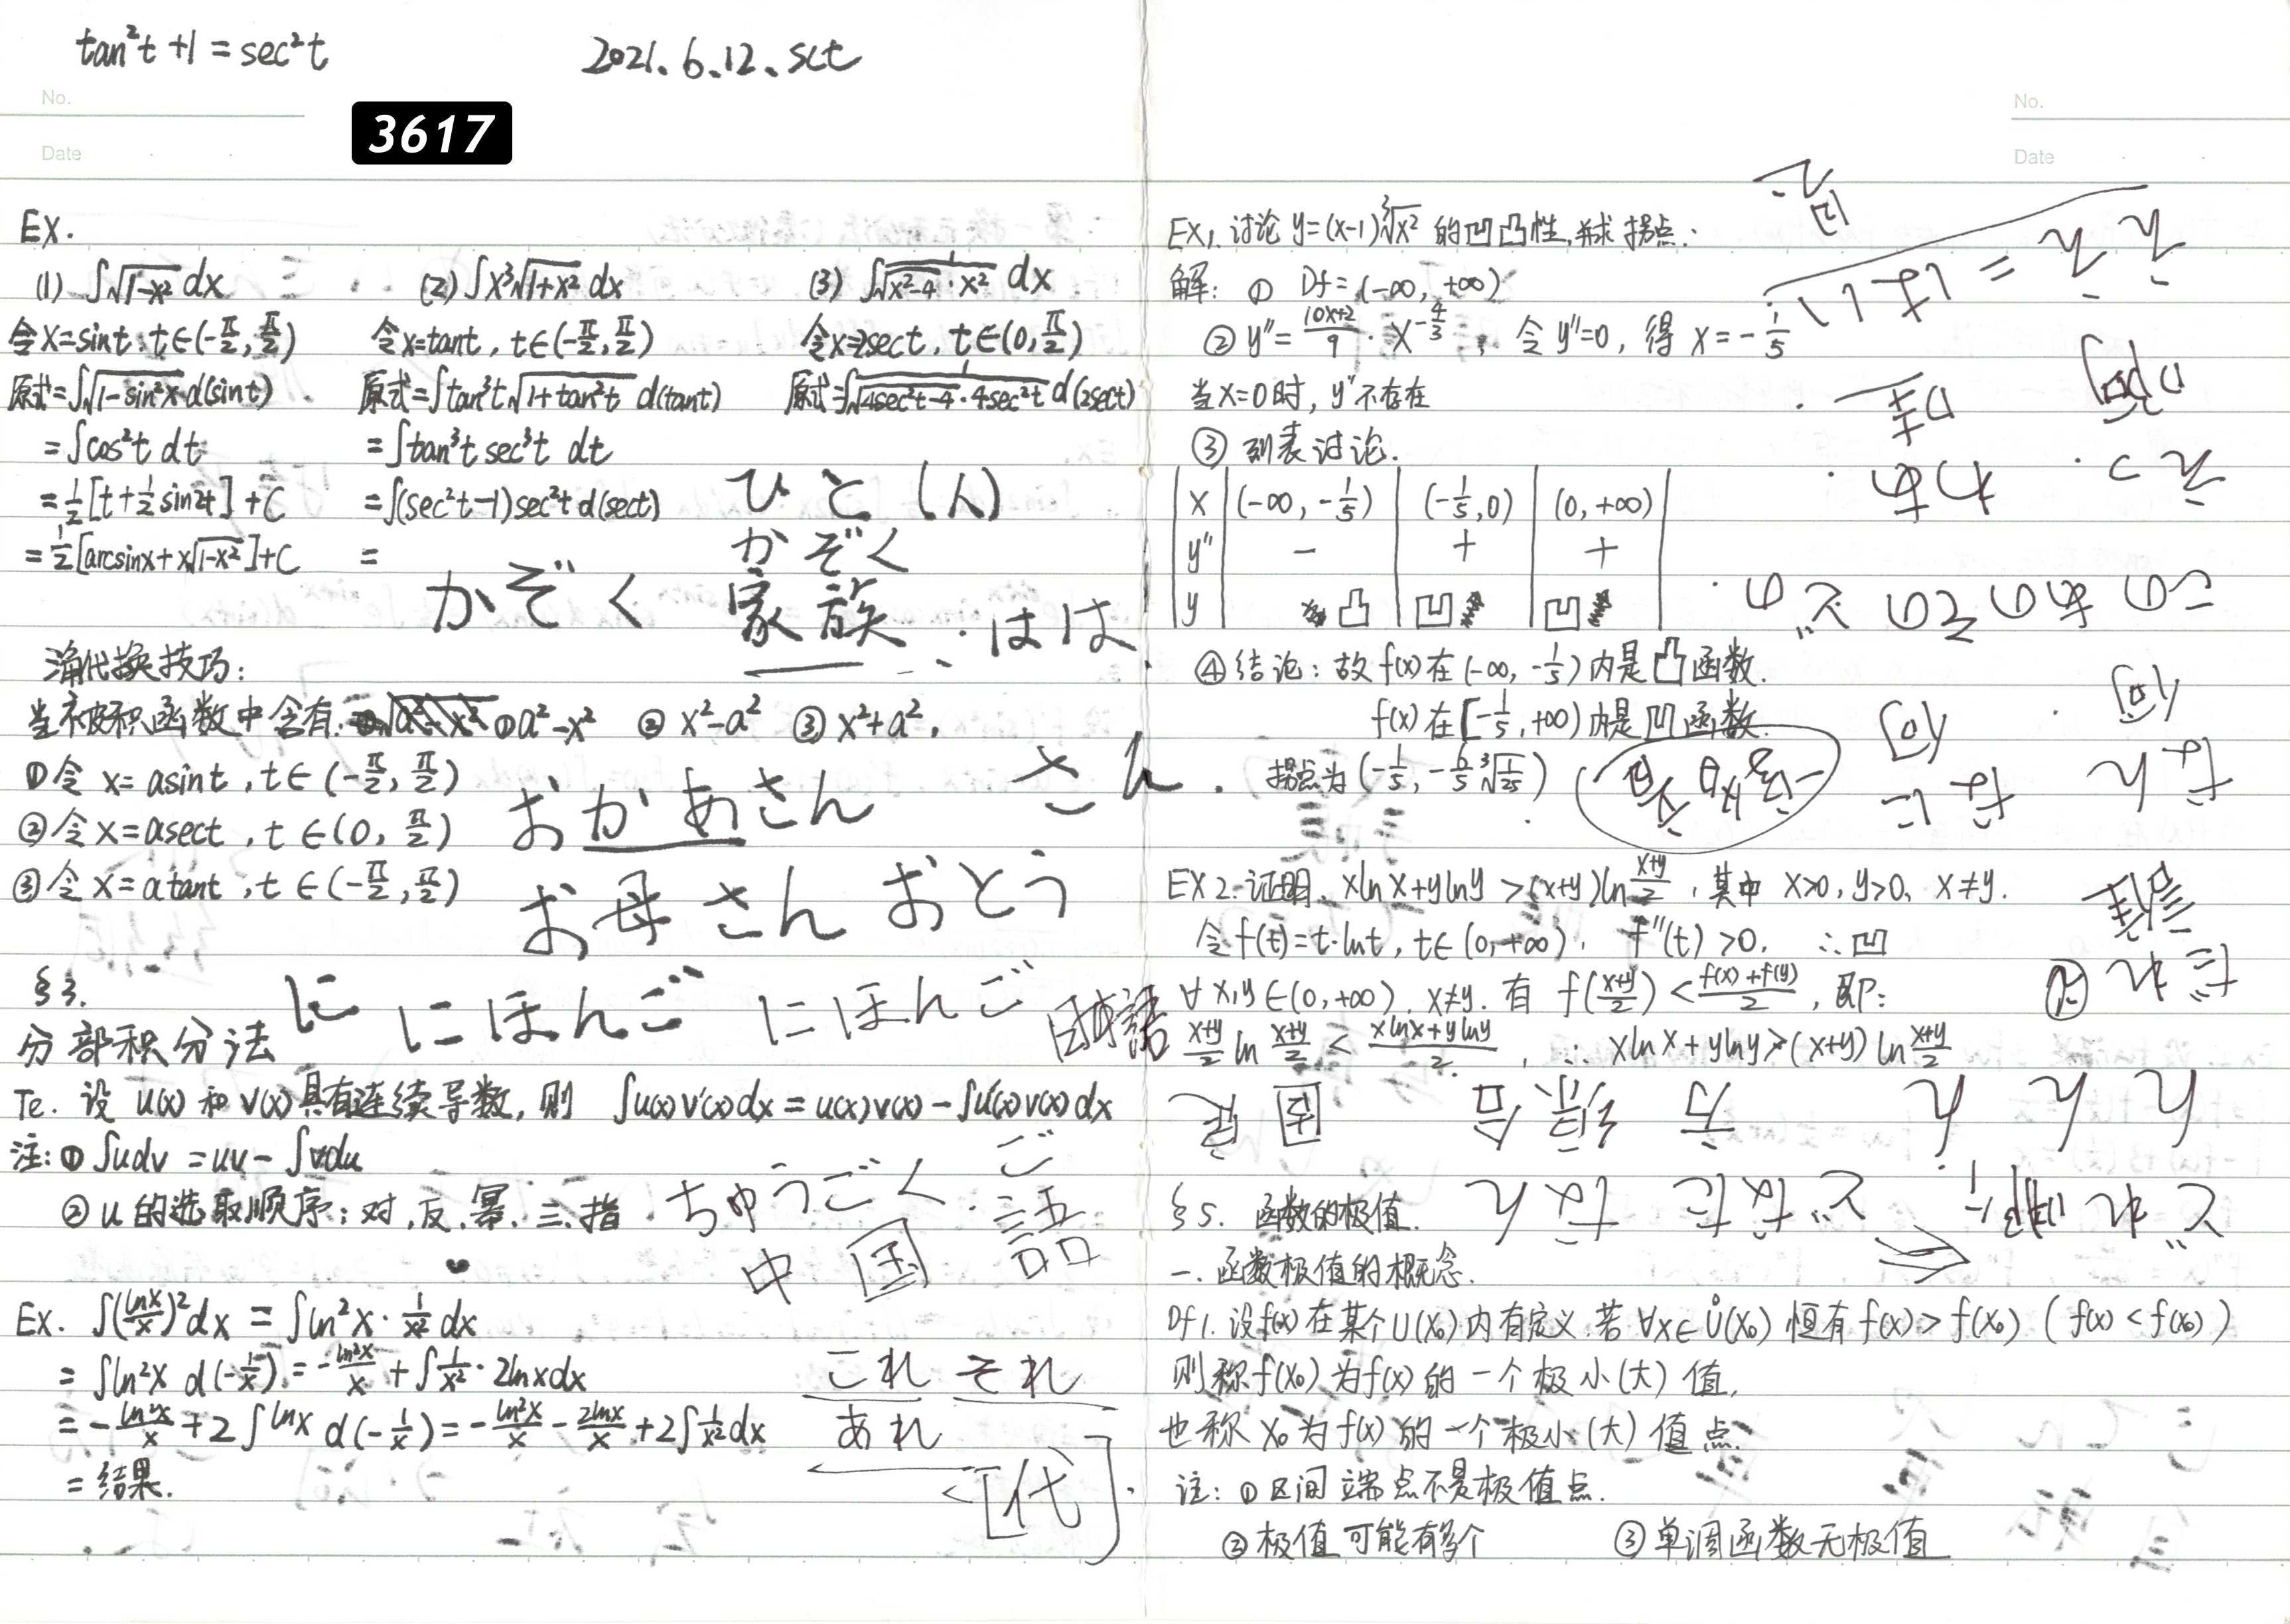 tan²t+1=sec²t
2021.6.12. sct
No.
Date
3617
EX.
(1) ∫√(1-x²) dx
令x=sint, t∈(-π/2, π/2)
原式=∫√(1-sin²x) d(sint)
=∫cos²t dt
=1/2[t+1/2 sin2t]+C
=1/2[arcsinx+x√(1-x²)]+C
(2) ∫x³√(1+x²) dx
令x=tant, t∈(-π/2, π/2)
原式=∫tan³t√(1+tan²t) d(tant)
=∫tan³t sec³t dt
=∫(sec²t-1)sec²t d(sect)
=
(3) ∫1/(√(x²-4)·x²) dx
令x=2sect, t∈(0, π/2)
原式=∫1/(√(4sec²t-4)·4sec²t) d(2sect)
ひと(人)
かぞく
かぞく 家族 . はは
代换技巧:
当被积函数中含有: ①a²-x² ② x²-a² ③ x²+a²,
①令 x=asint, t∈(-π/2, π/2)
②令 x=asect, t∈(0, π/2)
③令 x=atant, t∈(-π/2, π/2)
おかあさん さん
お母さん おとう
§3.
に にほんご にほんご 日本語
分部积分法
Te. 设 u(x) 和 v(x) 具有连续导数, 则 ∫u(x)v'(x)dx=u(x)v(x)-∫u'(x)v(x)dx
注: ① ∫udv=uv-∫vdu
② u的选取顺序: 对.反.幂.三.指
ちゅうごく ご
中国語
Ex. ∫(lnx/x)²dx=∫ln²x·1/x² dx
=∫ln²x d(-1/x)=-ln²x/x+∫1/x²·2lnxdx
=-ln²x/x+2∫lnx d(-1/x)=-ln²x/x-2lnx/x+2∫1/x²dx
=结果.
これ それ
あれ
[代]
No.
Date
EX1. 讨论 y=(x-1)³√x² 的凹凸性,并求拐点:
解: ① Df=(-∞, +∞)
② y''=(10x+2)/9·x^(-4/3), 令 y''=0, 得 x=-1/5
当x=0时, y''不存在
③ 列表讨论.
x (-∞, -1/5) (-1/5, 0) (0, +∞)
y'' - + +
y 凸 凹 凹
④结论: 故 f(x)在(-∞, -1/5)内是凸函数.
f(x)在[-1/5, +∞)内是凹函数.
拐点为(-1/5, -6/5 ³√(1/25))
EX2. 证明 xlnx+ylny>(x+y)ln(x+y)/2, 其中 x>0, y>0, x≠y.
令f(t)=t·lnt, t∈(0, +∞), f''(t)>0, ∴凹
∀x,y∈(0, +∞), x≠y. 有 f((x+y)/2)<(f(x)+f(y))/2, 即:
(x+y)/2 ln (x+y)/2 < (xlnx+ylny)/2, ∴ xlnx+ylny>(x+y)ln(x+y)/2
§5. 函数的极值.
一. 函数极值的概念.
Df1. 设f(x)在某个U(x₀)内有定义,若∀x∈Ů(x₀)恒有f(x)>f(x₀) (f(x)<f(x₀))
则称f(x₀)为f(x)的一个极小(大)值,
也称x₀为f(x)的一个极小(大)值点.
注: ①区间端点不是极值点.
②极值可能有多个 ③单调函数无极值
だれ
誰
なん
なに
何
何
この あの その どの